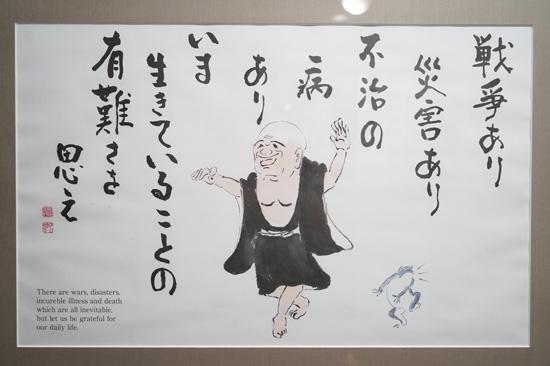 戦争あり
災害あり
不治の
病
あり
いま
生きていることの
有難さを
思え
There are wars, disasters,
incureble illness and death
which are all inevitable,
but let us be grateful for
our daily life.